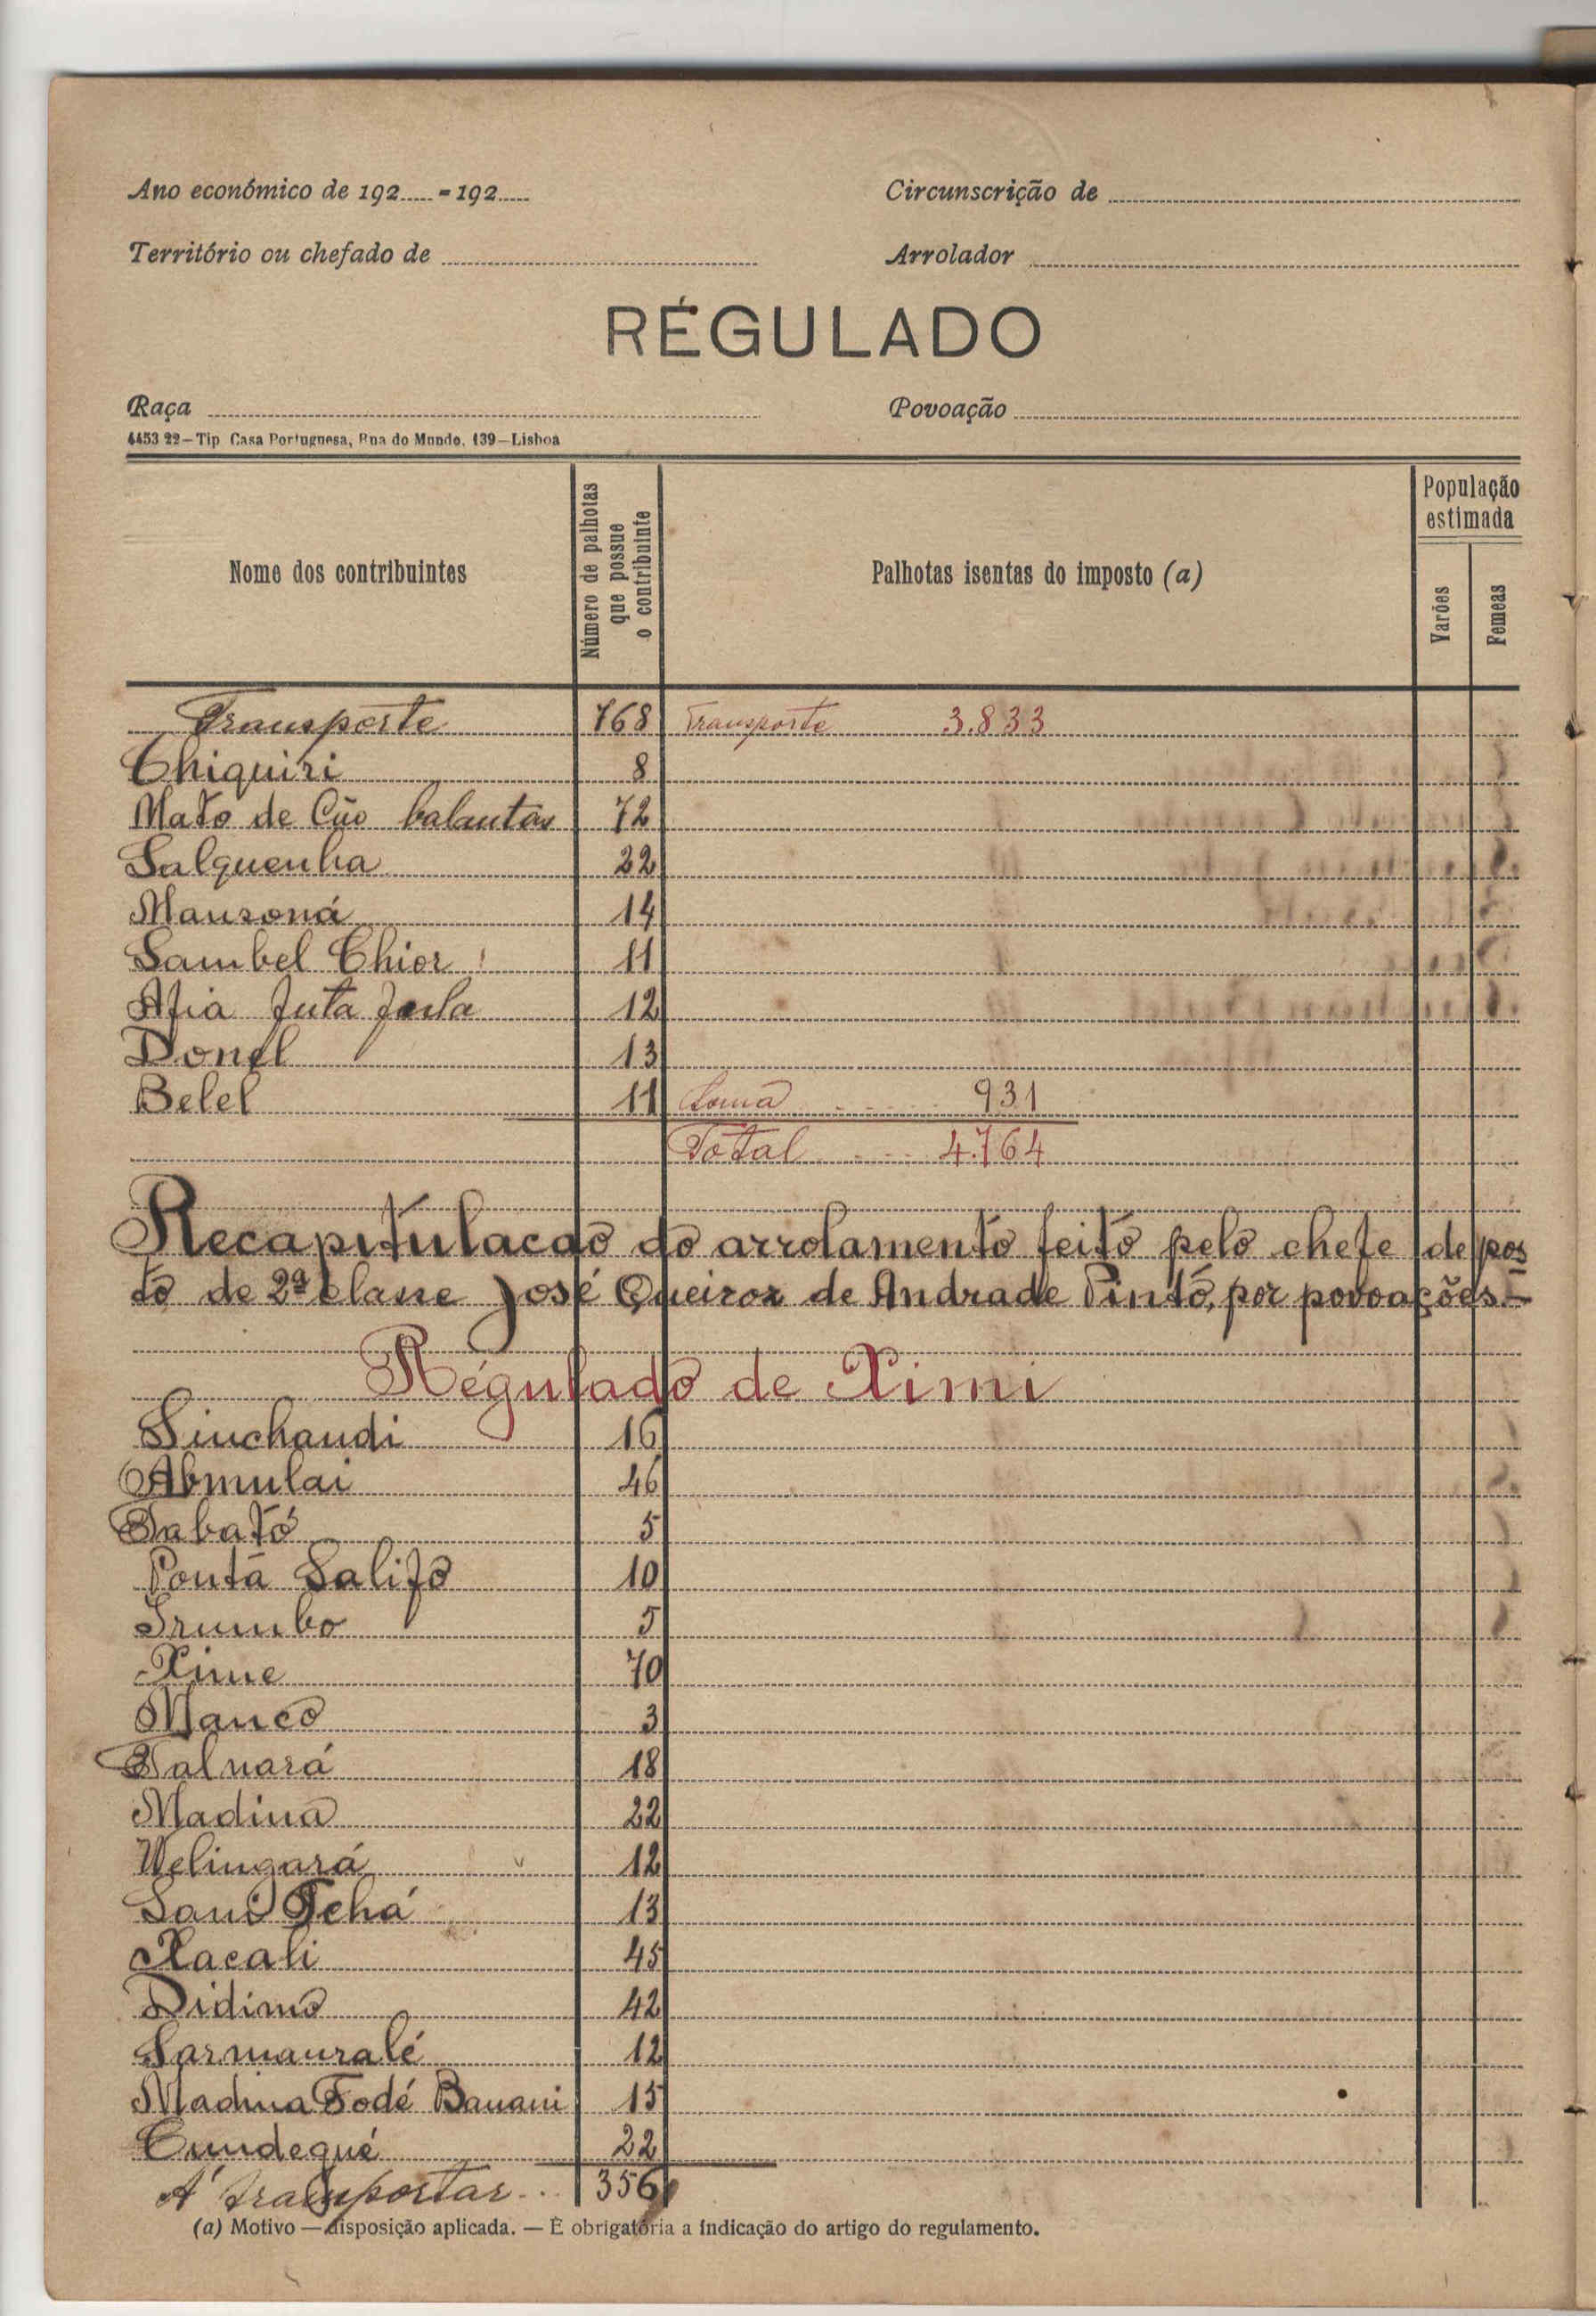 Ano económico de 192..... - 192.....
Circunscrição de
Território ou chefado de
Arrolador
RÉGULADO
Raça
Povoação
4453 22—Tip Casa Portuguesa, Rua do Mundo, 139—Lisboa
Nome dos contribuintes
Número de palhotas que possue o contribuinte
Palhotas isentas do imposto (a)
População estimada
Varões
Femeas
Transporte 768 Transporte 3.833
Chiquiri 8
Mato de Cão balantas 72
Salquenha 22
Mansoná 14
Sambel Chior 11
Afia futa fula 12
Donel 13
Belel 11 Soma 931
Total 4.764
Recapitulacao do arrolamento feito pelo chefe de pos
to de 2ª classe José Queiroz de Andrade Pinto, por povoações.—
Régulado de Ximi
Sinchandi 16
Abmulai 46
Tabató 5
Ponta Salifo 10
Irumbo 5
Xime 70
Manco 3
Talnará 18
Madina 22
Welingará 12
Sano Tchá 13
Xacali 45
Didimo 42
Sarmauralé 12
Madina Fodé Banani 15
Cundegué 22
A' transportar... 356
(a) Motivo — disposição aplicada. — É obrigatória a indicação do artigo do regulamento.